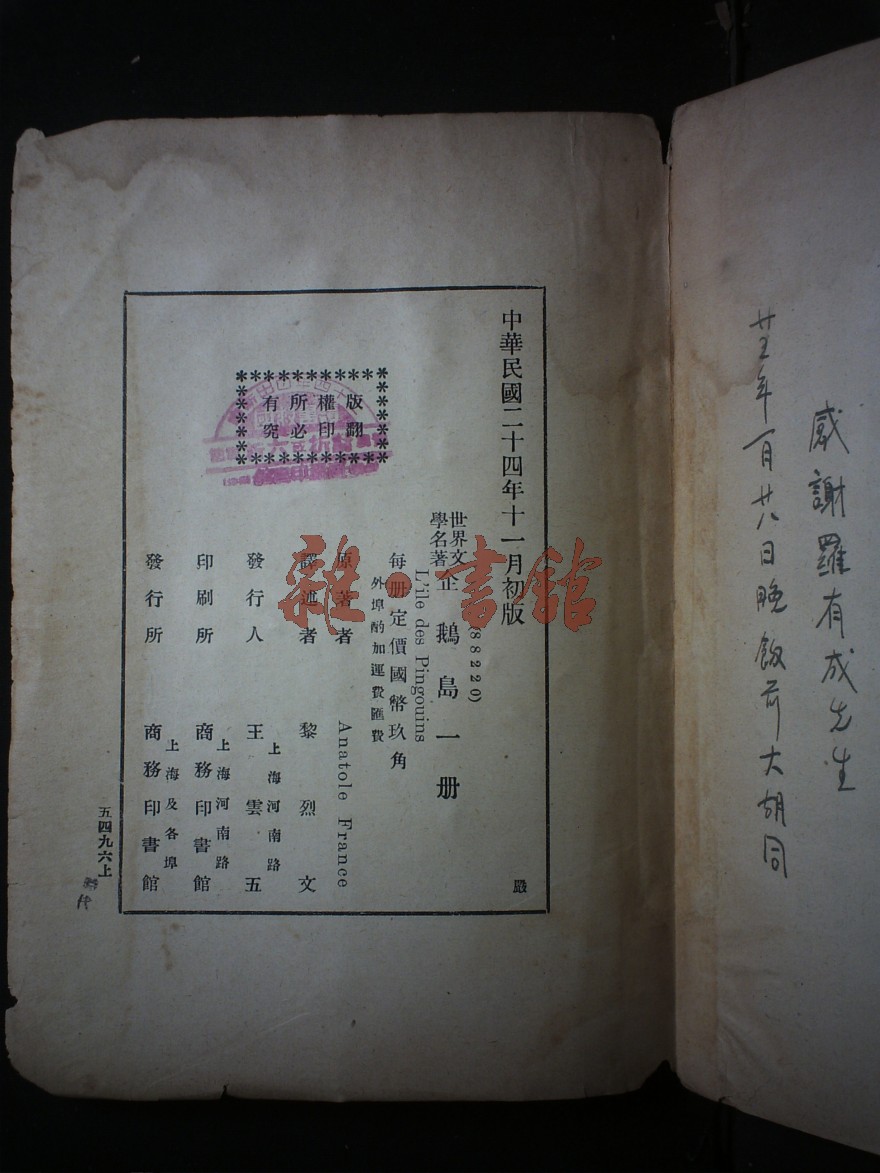 感謝羅有成先生
廿五年一月廿八日晚飯前大胡同
中華民國二十四年十一月初版
(88220)
世界文學名著 企鵝島一冊
L'île des Pingouins
每册定價國幣玖角
外埠酌加運費匯費
原著者 Anatole France
譯述者 黎烈文
發行人 王雲五
上海河南路
印刷所 商務印書館
上海河南路
發行所 商務印書館
上海及各埠
版權所有
翻印必究
嚴
五四九六上
雜·書館